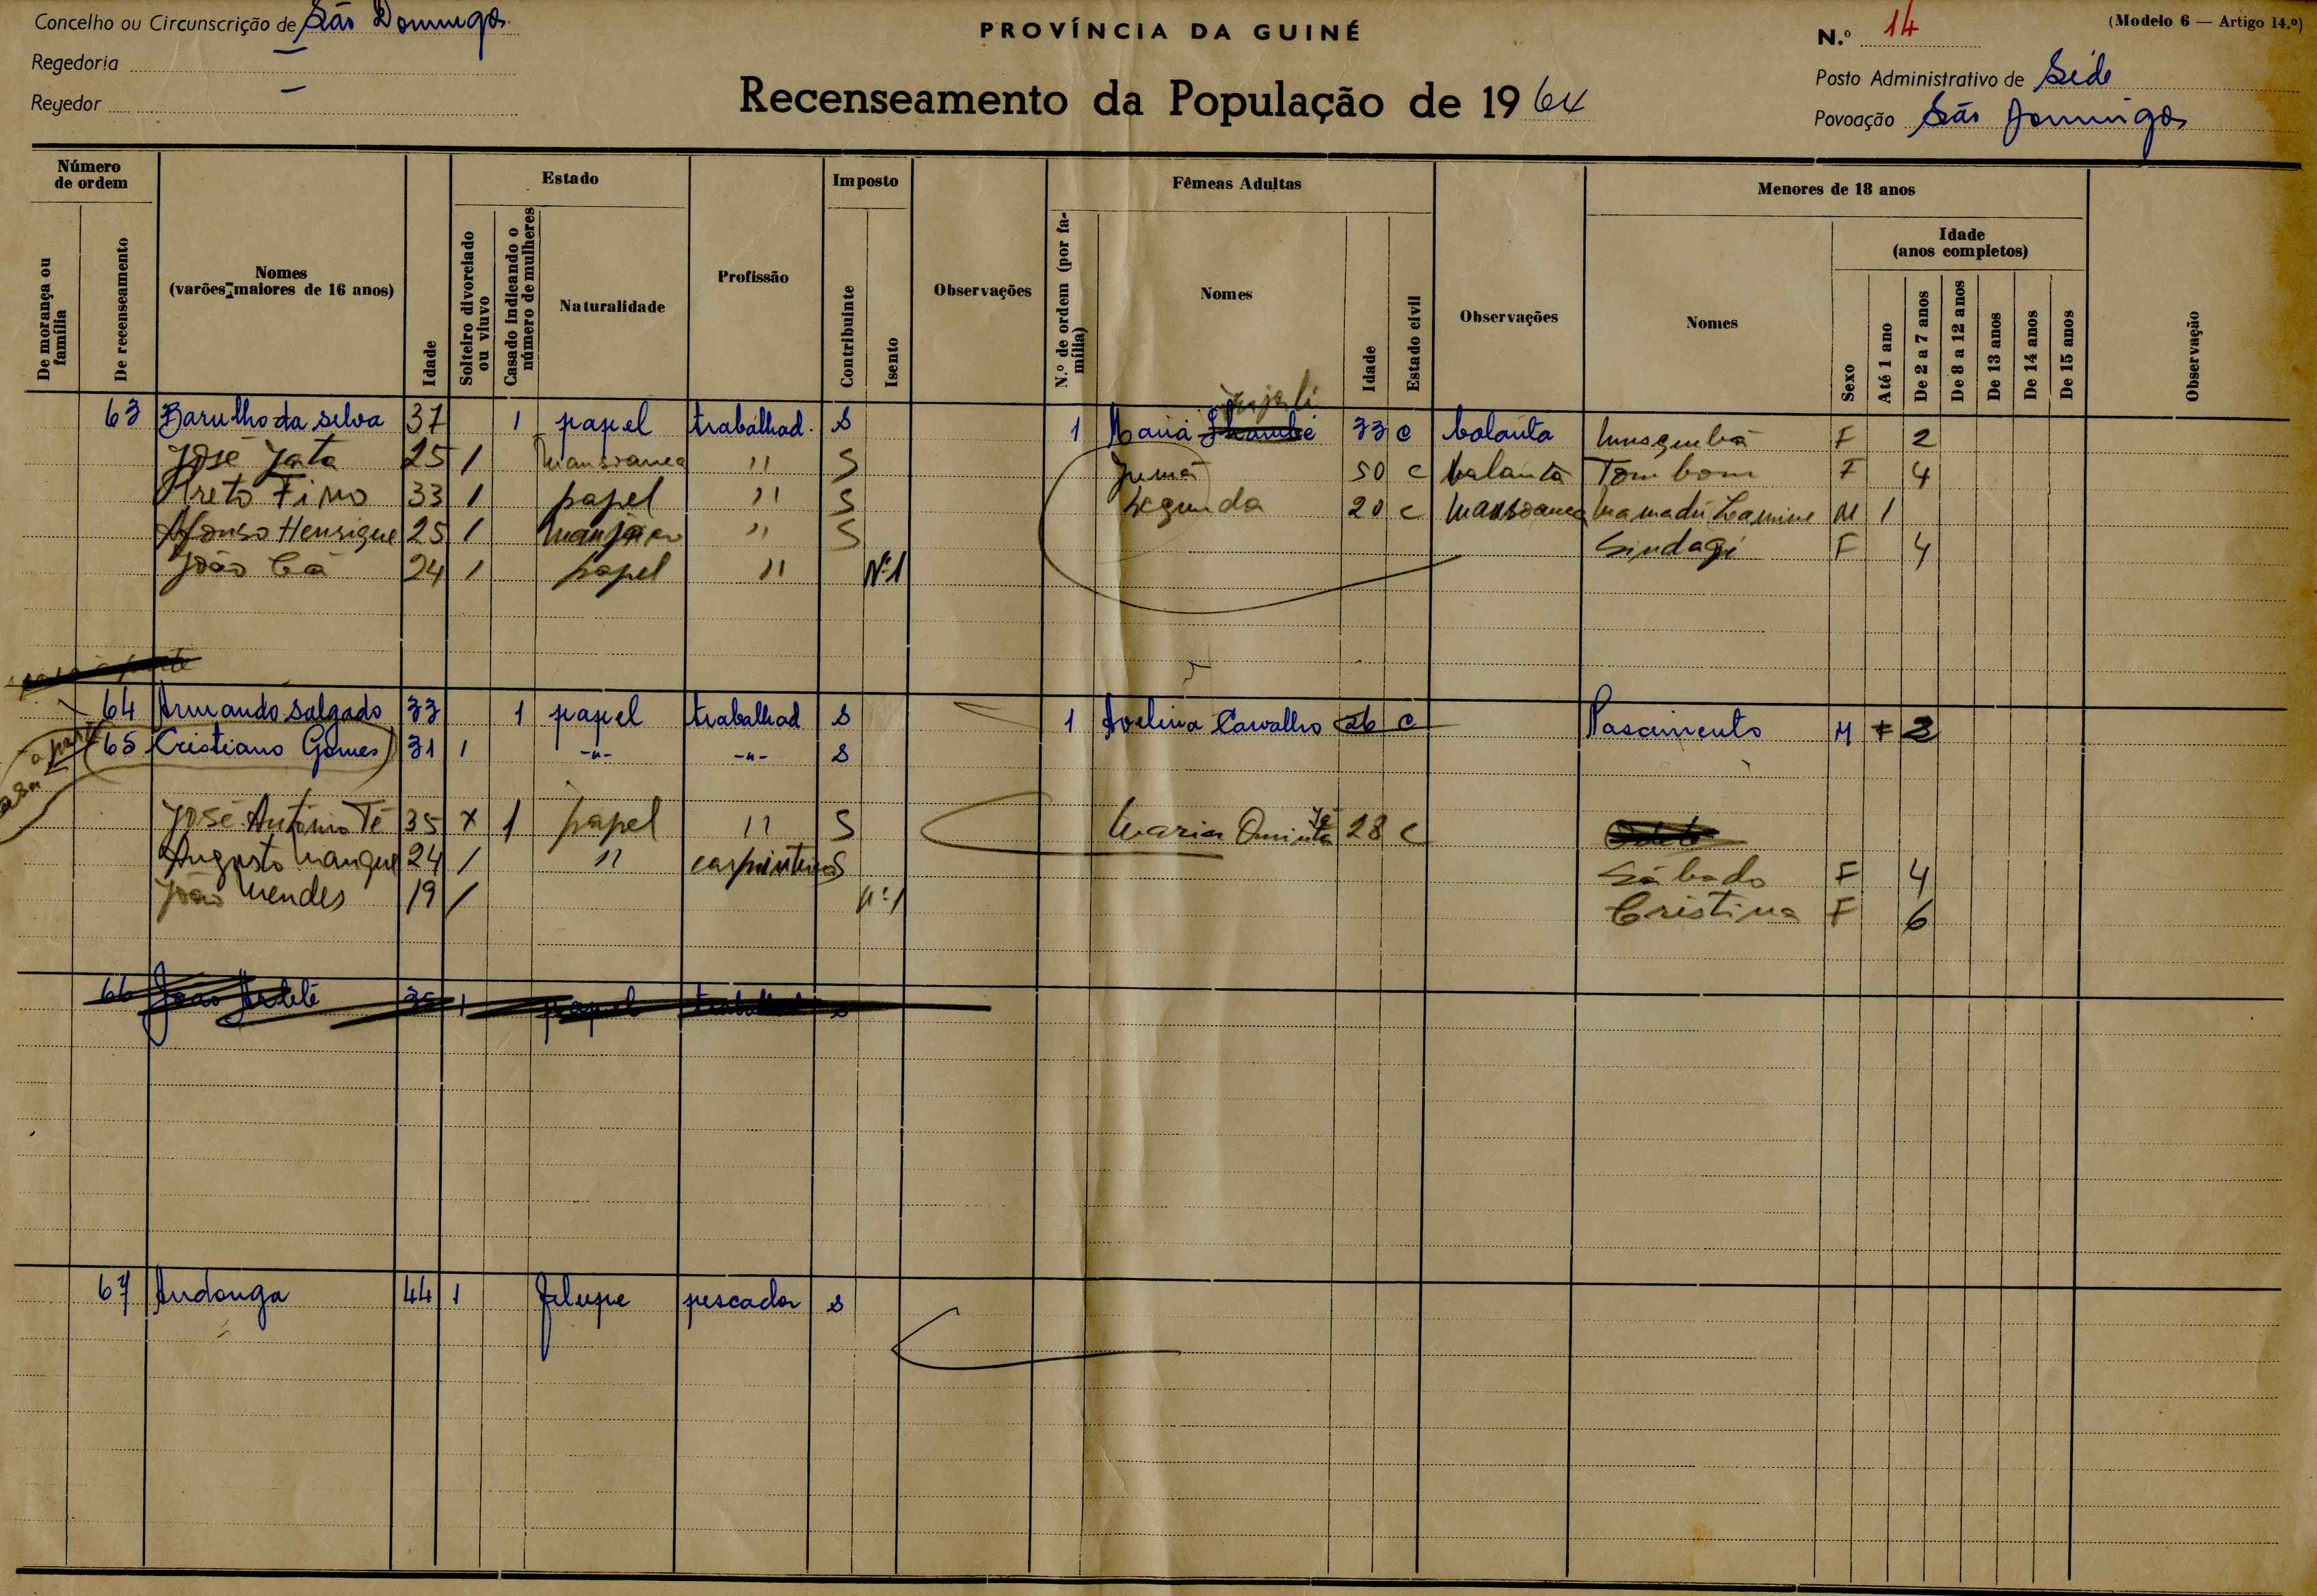 Concelho ou Circunscrição de São Domingos
PROVÍNCIA DA GUINÉ
N.º 14
(Modelo 6 — Artigo 14.º)
Regedoria —
Regedor —
Recenseamento da População de 1964
Posto Administrativo de Sede
Povoação São Domingos
Número de ordem
De morança ou família
De recenseamento
Nomes
(varões maiores de 16 anos)
Idade
Estado
Solteiro divorciado ou viuvo
Casado indicando o número de mulheres
Naturalidade
Profissão
Imposto
Contribuinte
Isento
Observações
Fêmeas Adultas
N.º de ordem (por família)
Nomes
Idade
Estado civil
Observações
Menores de 18 anos
Nomes
Sexo
Idade
(anos completos)
Até 1 ano
De 2 a 7 anos
De 8 a 12 anos
De 13 anos
De 14 anos
De 15 anos
Observação
63 Barulho da Silva 37 1 papel trabalhad. S 1 Maria 33 c balanta F 2
José Jata 25 / Mansoanca " S Jumá 50 c balanta Tombom F 4
Preto Fino 33 / papel " S Segunda 20 c Mansoanca Mamadú Lamine M 1
Afonso Henrique 25 / Manjaco " S Sindagi F 4
João Cá 24 / papel " Nº1
64 Armando Salgado 33 1 papel trabalhad S 1 Avelina Carvalho 26 c Nascimento M 3
65 Cristiano Gomes 31 1 -"- -"- S
José António Té 35 x 1 papel " S Maria Quinta Té 28 c
Augusto Mangue 24 / " carpinteiro S Sábado F 4
João Mendes 19 / nº1 Cristina F 6
66 João 35 1 papel S
67 Andonga 44 1 Felupe pescador S